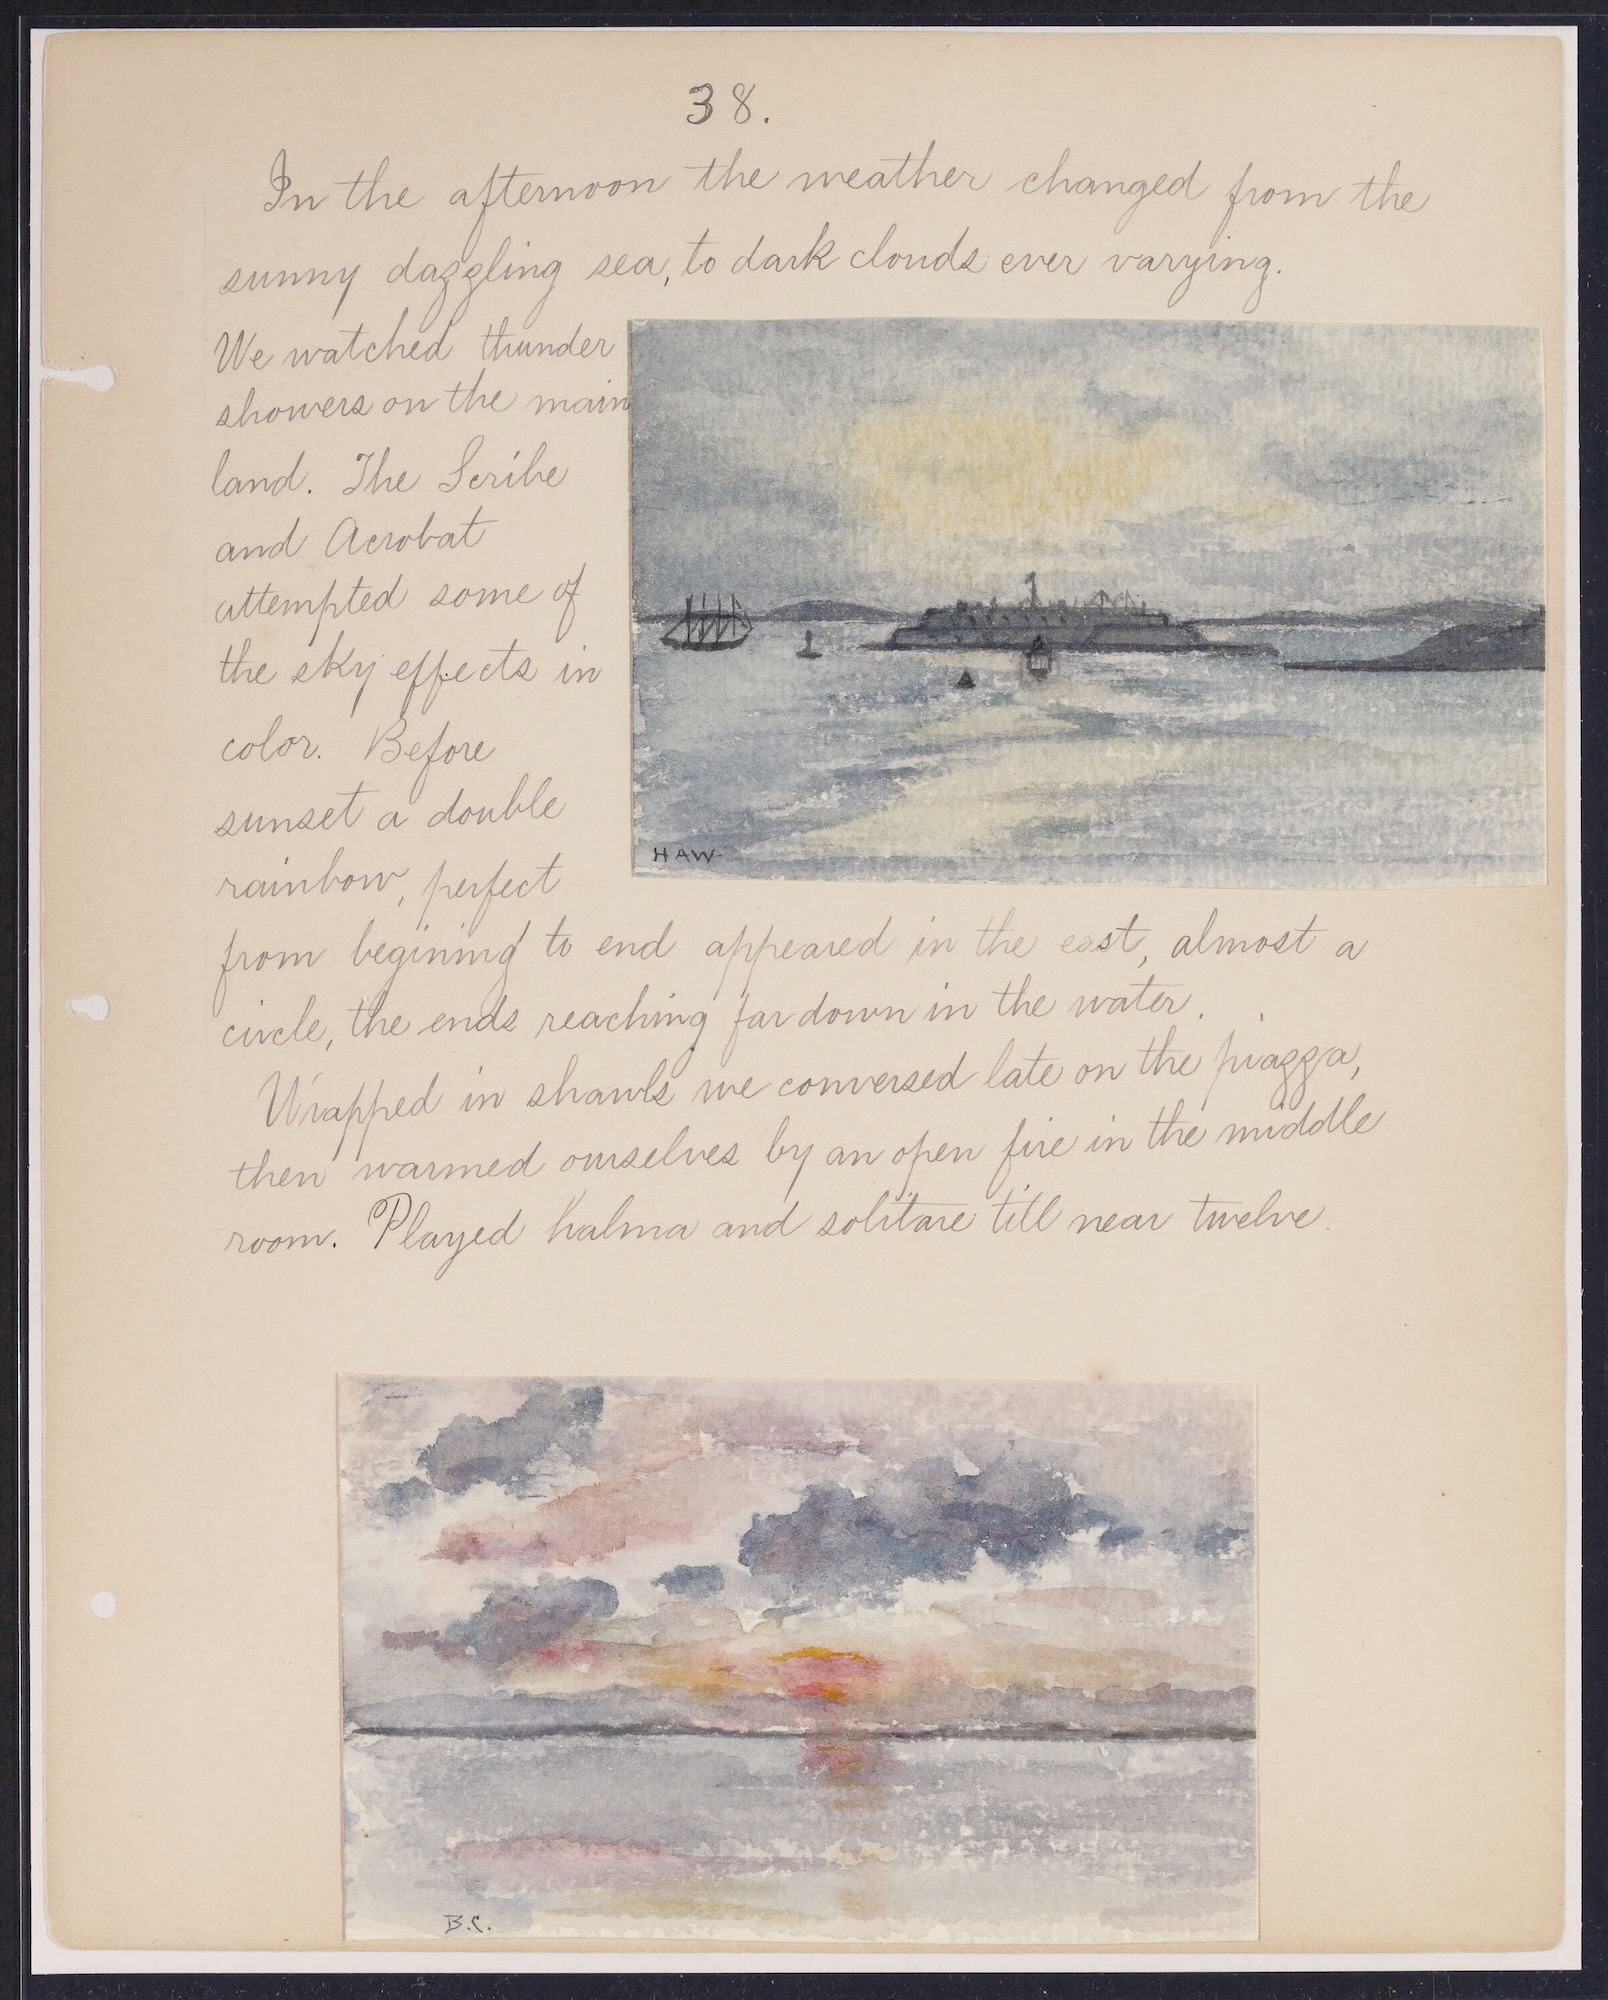 38.
In the afternoon the weather changed from the
sunny dazzling sea, to dark clouds ever varying.
We watched thunder
showers on the main
land. The Scribe
and Acrobat
attempted some of
the sky effects in
color. Before
sunset a double
rainbow, perfect
from begining to end appeared in the east, almost a
circle, the ends reaching far down in the water.
Wrapped in shawls we conversed late on the piazza,
then warmed ourselves by an open fire in the middle
room. Played halma and solitare till near twelve.
HAW
B.C.